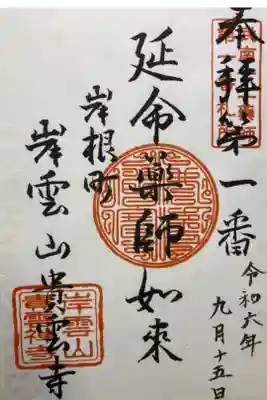 奉拝第一番
延命薬師如来
岸根町
岸雲山貴雲寺
令和六年
九月十五日
岸雲山
貴雲寺